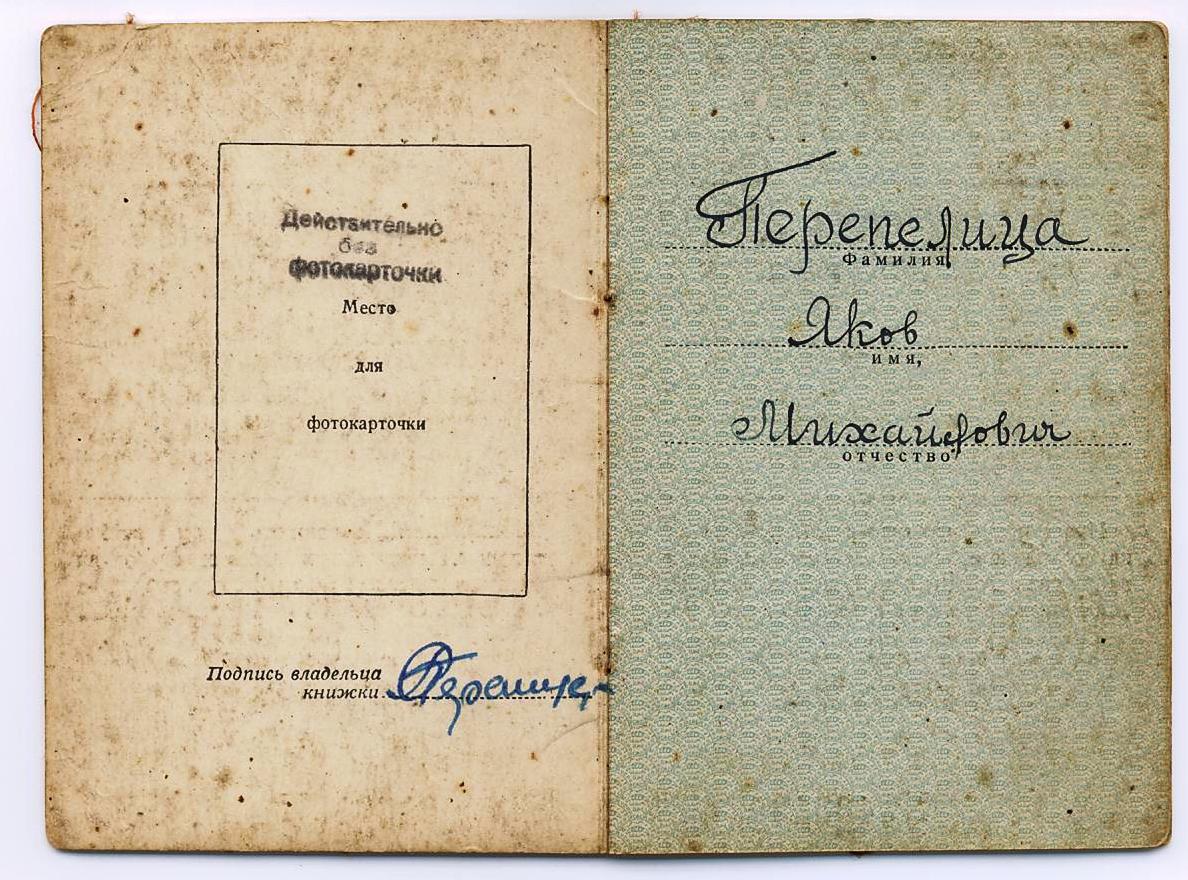 Действительно
без
фотокарточки
Место
для
фотокарточки
Подпись владельца
книжки
Перепелица
Фамилия
Яков
имя,
Михайлович
отчество